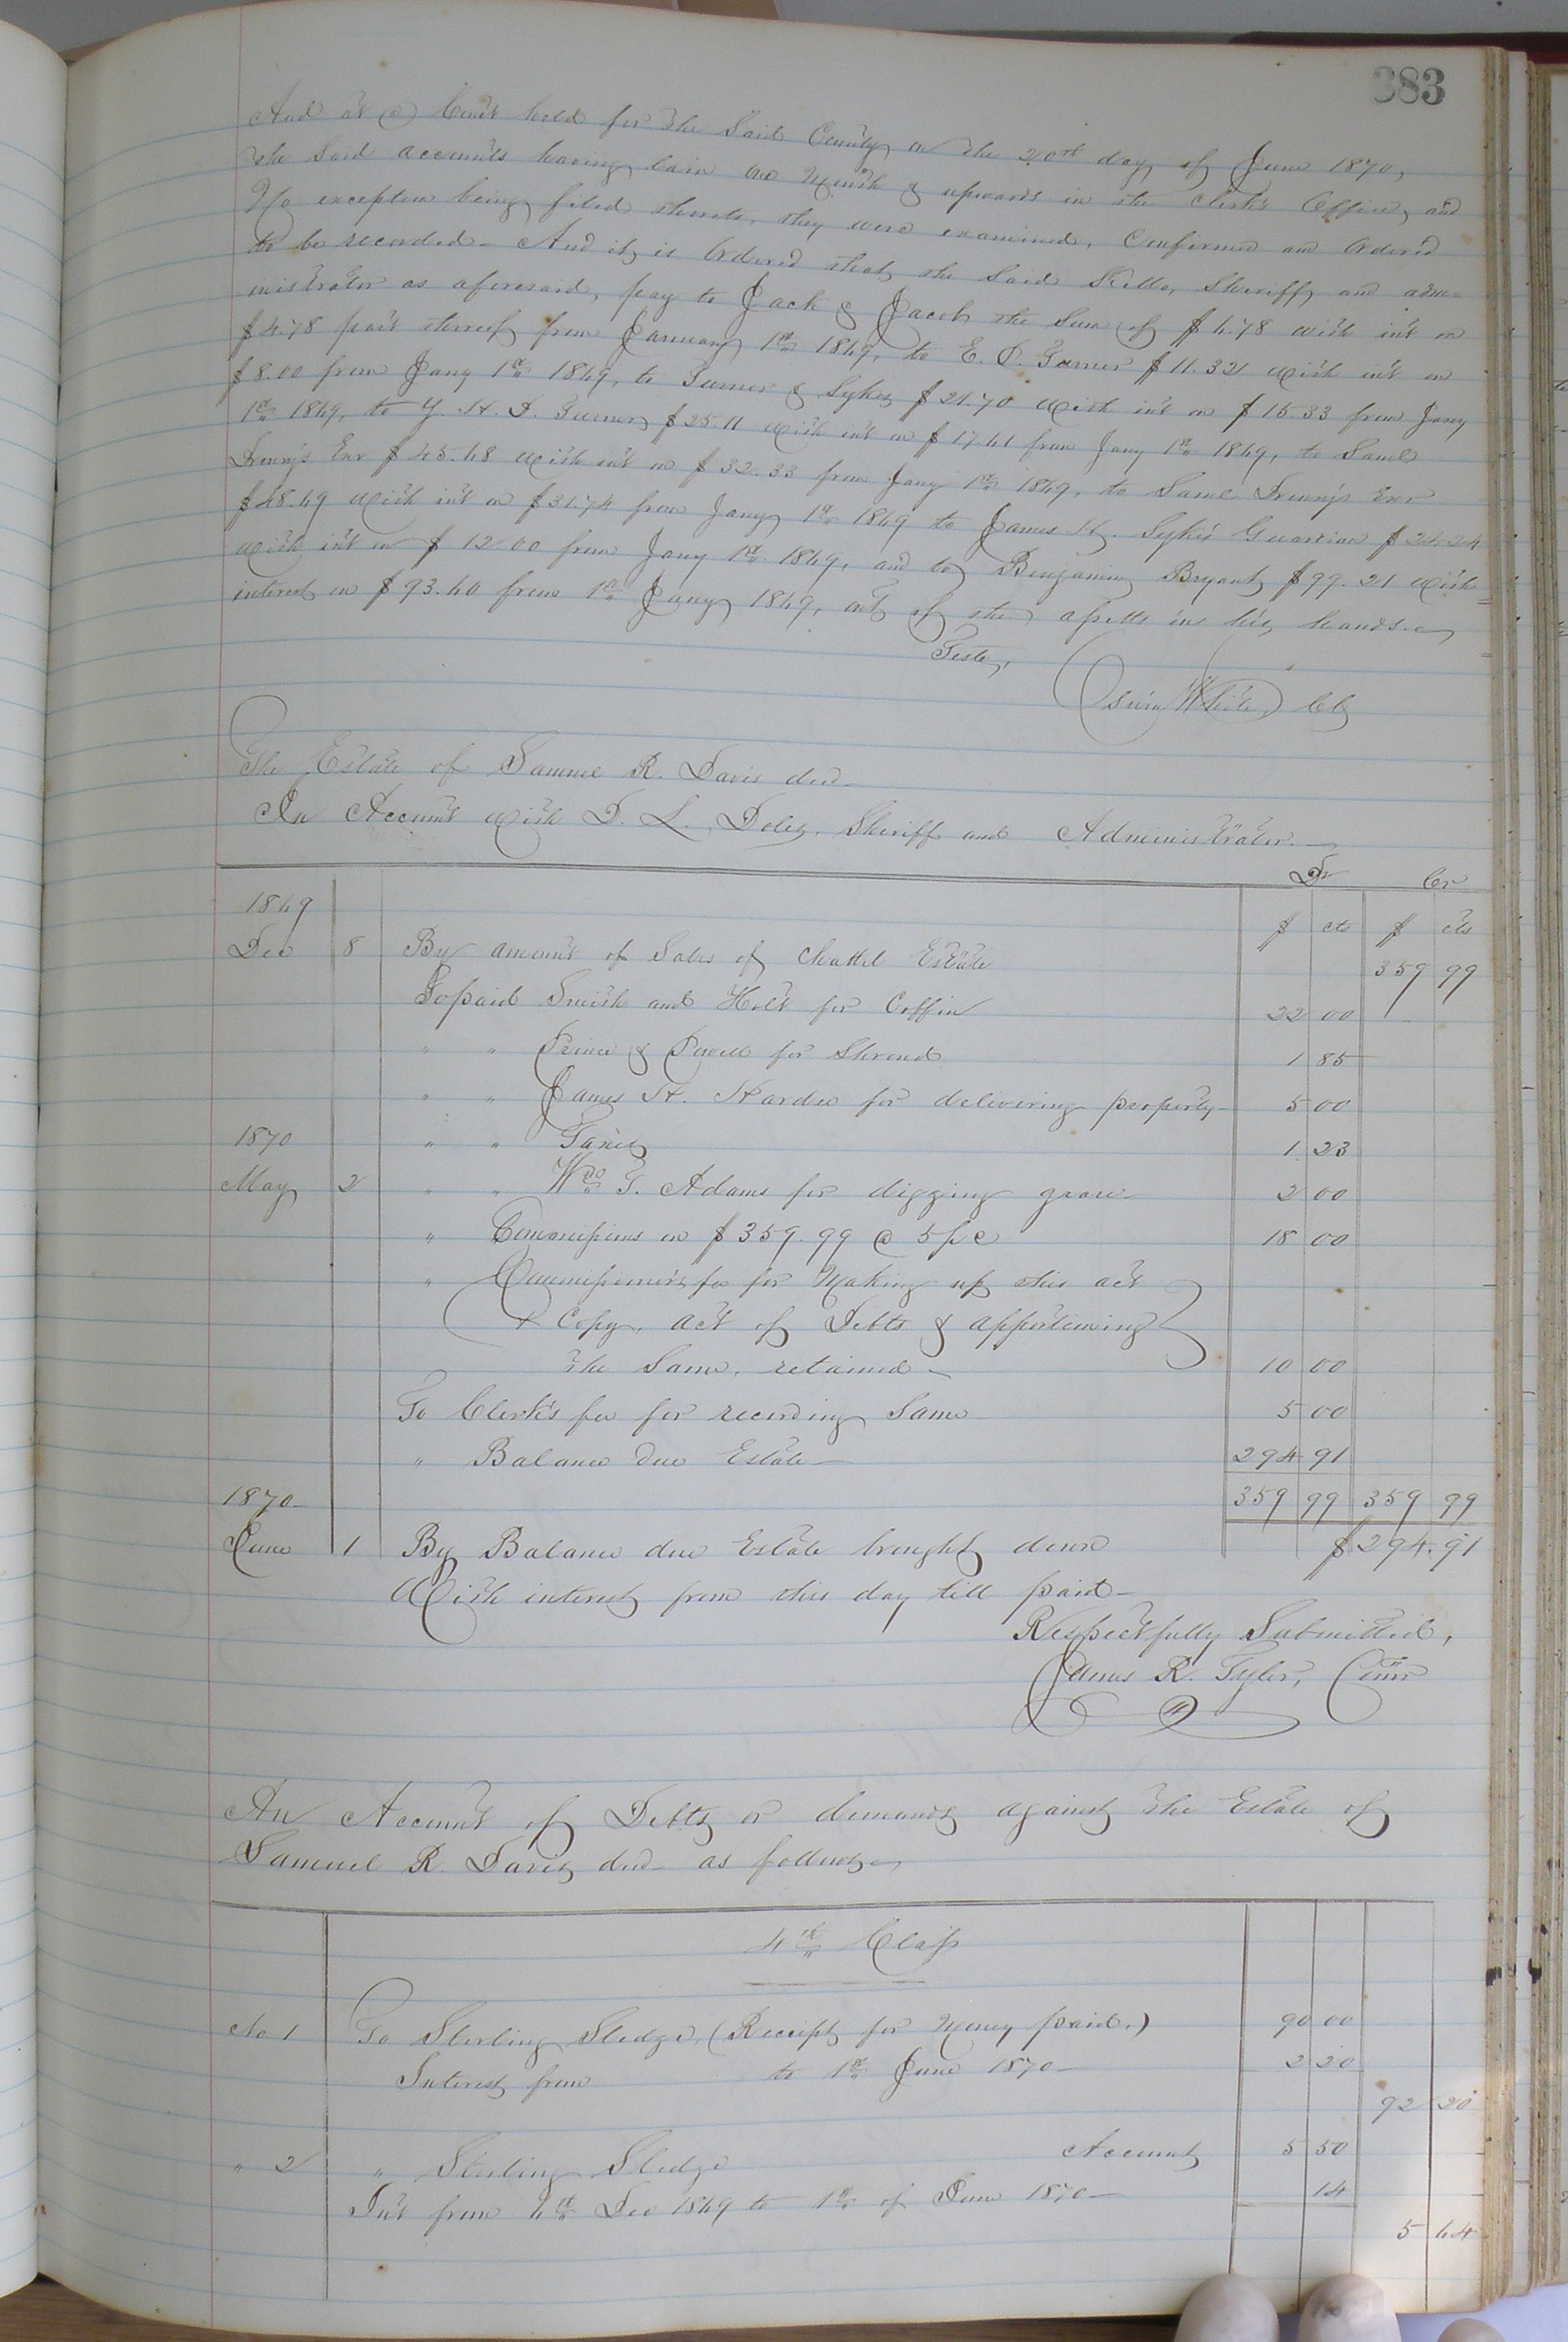 383
And at a Court held for the Said County on the 20th day of June 1870,
the Said accounts having lain one Month & upwards in the Clerk's Office, and
No exception being filed thereto, they were examined, Confirmed and Ordered
to be recorded. And it is Ordered that the Said Kello, Sheriff and admi-
nistrator as aforesaid, pay to Jack & Jacob the Sum of $4.78 with int on
$4.78 part thereof from January 1st 1869, to E. P. Turner $11.32 with int on
$8.00 from Jany 1st 1869, to Turner & Sykes $21.70 with int on $15.33 from Jany
1st 1869, to Y. H. D. Turner $25.11 with int on $17.61 from Jany 1st 1869, to Saml
Drewry's Exr $45.68 with int on $32.33 from Jany 1st 1869, to Same Drewry's Exr
$48.69 with int on $31.74 from Jany 1st 1869 to James H. Sykes Guardian $24.24
with int on $12.00 from Jany 1st 1869, and to Benjamin Bryant $99.21 with
interest on $93.60 from 1st Jany 1869, out of the assetts in his hands.
Teste,
White, Clk
The Estate of Samuel R. Davis decd
In Account with D. L. Doles, Sheriff and Administrator.
Dr Cr
1869 $ cts $ cts
Dec 8 By amount of Sales of Chattel Estate 359 99
To paid Smith and Holt for Coffin 22 00
" " Prince & Powell for Shroud 1 85
" " James H. Hardee for delivering property 5 00
1870 " " Taxes 1 23
May 2 " " Wm T. Adams for digging grave 2 00
" Commissions on $359.99 @ 5 pc 18 00
" Commissioner's fee for Making up this act
& Copy, act of Debts & apportioning
the Same, retained 10 00
To Clerk's fee for recording Same 5 00
" Balance due Estate 294 91
1870 359 99 359 99
June 1 By Balance due Estate brought down $294.91
With interest from this day till paid
Respectfully Submitted,
James R. Tyler, Comr
An Account of Debts or demands against the Estate of
Samuel R. Davis decd as follows
4th Class
No 1 To Sterling Sledge, (Receipt for Money paid.) 90 00
Interest from to 1st June 1870 2 20
92 20
" 2 " Sterling Sledge Account 5 50
Int from 4th Dec 1869 to 1st of June 1870 14
5 64